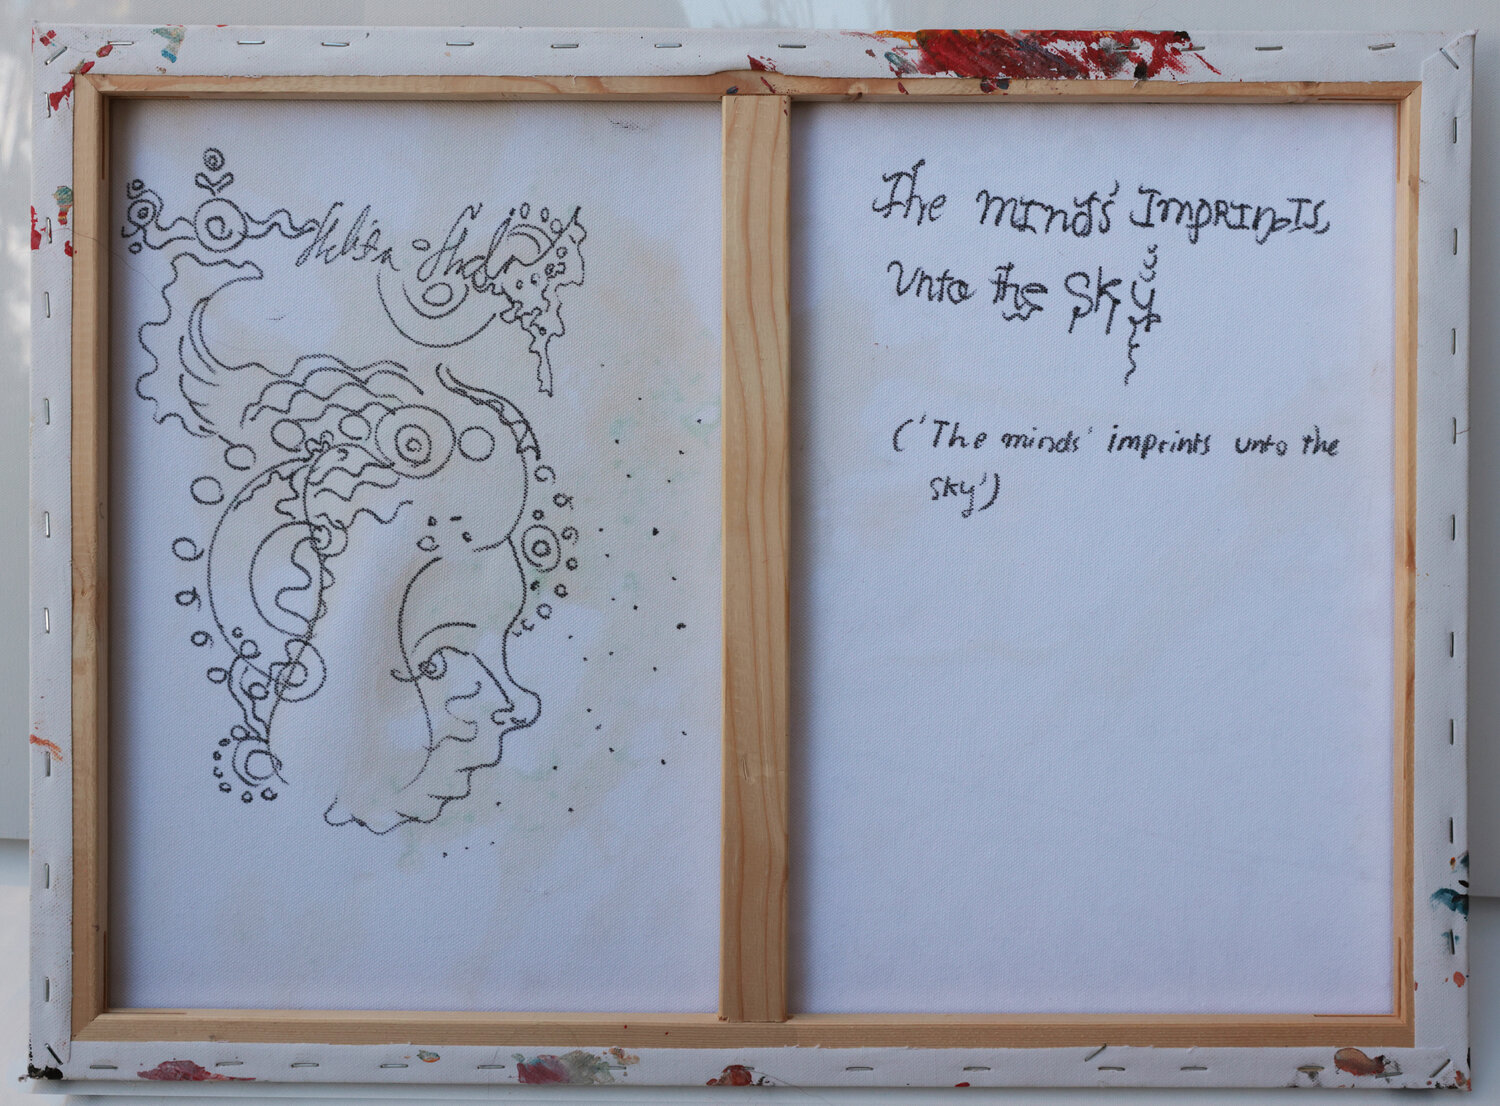 The minds' Imprints,
Unto the Sky
('The minds' imprints unto the
sky')